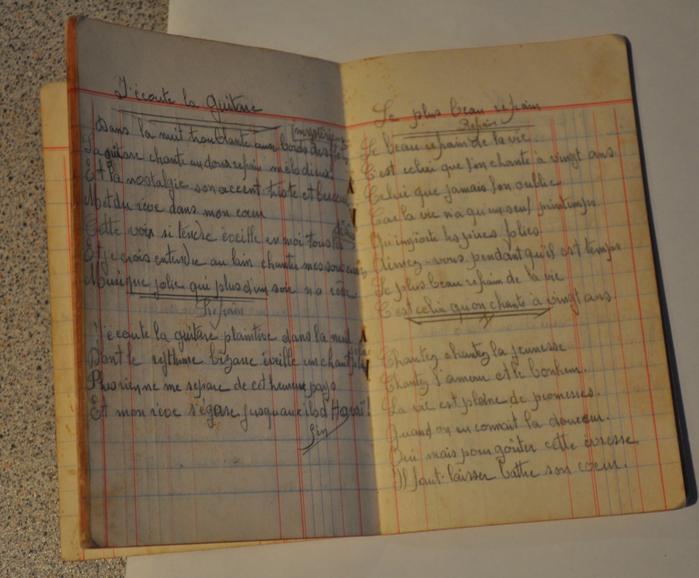 J'écoute la guitare
Dans la nuit troublante aux bords des flots
(mystérieux
La guitare chante un doux refrain mélodieux
Et la nostalgie son accent triste et berceur
Met du rêve dans mon cœur
Cette voix si tendre éveille en moi tous
Et je crois entendre au loin chanter mes
Musique jolie qui plus d'un soir
Refrain
J'écoute la guitare plaintive dans la nuit
Dont le rythme bizarre éveille un chant
Plus rien ne me separe de cet heureux pays
Et mon rêve s'égare jusqu'aux iles d'Hawaï
fin
Le plus beau refrain
Refrain
Le beau refrain de la vie
C'est celui que l'on chante à vingt ans
Celui que jamais l'on oublie
Car la vie n'a qu'un seul printemps
Qu'importe les pires folies
Aimez-vous pendant qu'il est temps
Le plus beau refrain de la vie
C'est celui qu'on chante à vingt ans.
Chantez chantez la jeunesse
Chantez l'amour et le bonheur.
La vie est pleine de promesses.
Quand on en connait la douceur.
Oui mais pour goûter cette ivresse
Il faut laisser battre son cœur.